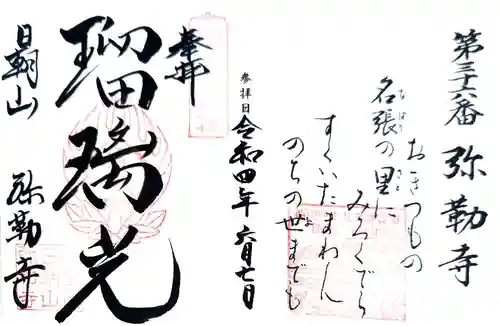 第三十六番 弥勒寺
おきつもの
名張の里に
なばり
さと
みろくでら
すくいたまわん
のちの世までも
よ
参拝日
令和四年六月七日
奉拝
瑠璃光
日朝山
弥勒寺